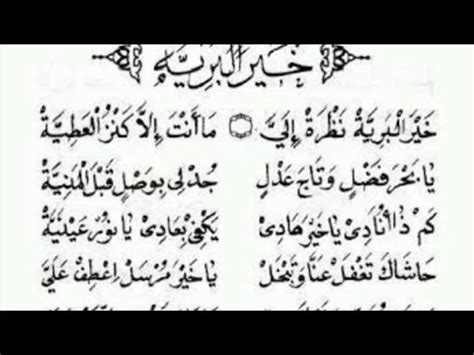 خَيْرُ الْبَرِيَّهْ
خَيْرَ الْبَرِيَّةْ نَظْرَةْ إِلَيَّ ۞ مَا أَنْتَ إِلَّا كَنْزُ الْعَطِيَّةْ
يَا بَحْرَ فَضْلٍ وَتَاجَ عَدْلٍ جُدْ لِي بِوَصْلٍ قَبْلَ الْمَنِيَّةْ
كَمْ ذَا أُنَادِيْ يَا خَيْرَ هَادِيْ يَكْفِيْ بِعَادِيْ يَا نُوْرَ عَيْنَيَّةْ
حَاشَاكَ تَغْفَلْ عَنَّا وَتَبْخَلْ يَا خَيْرَ مُرْسَلْ اِعْطِفْ عَلَيَّ